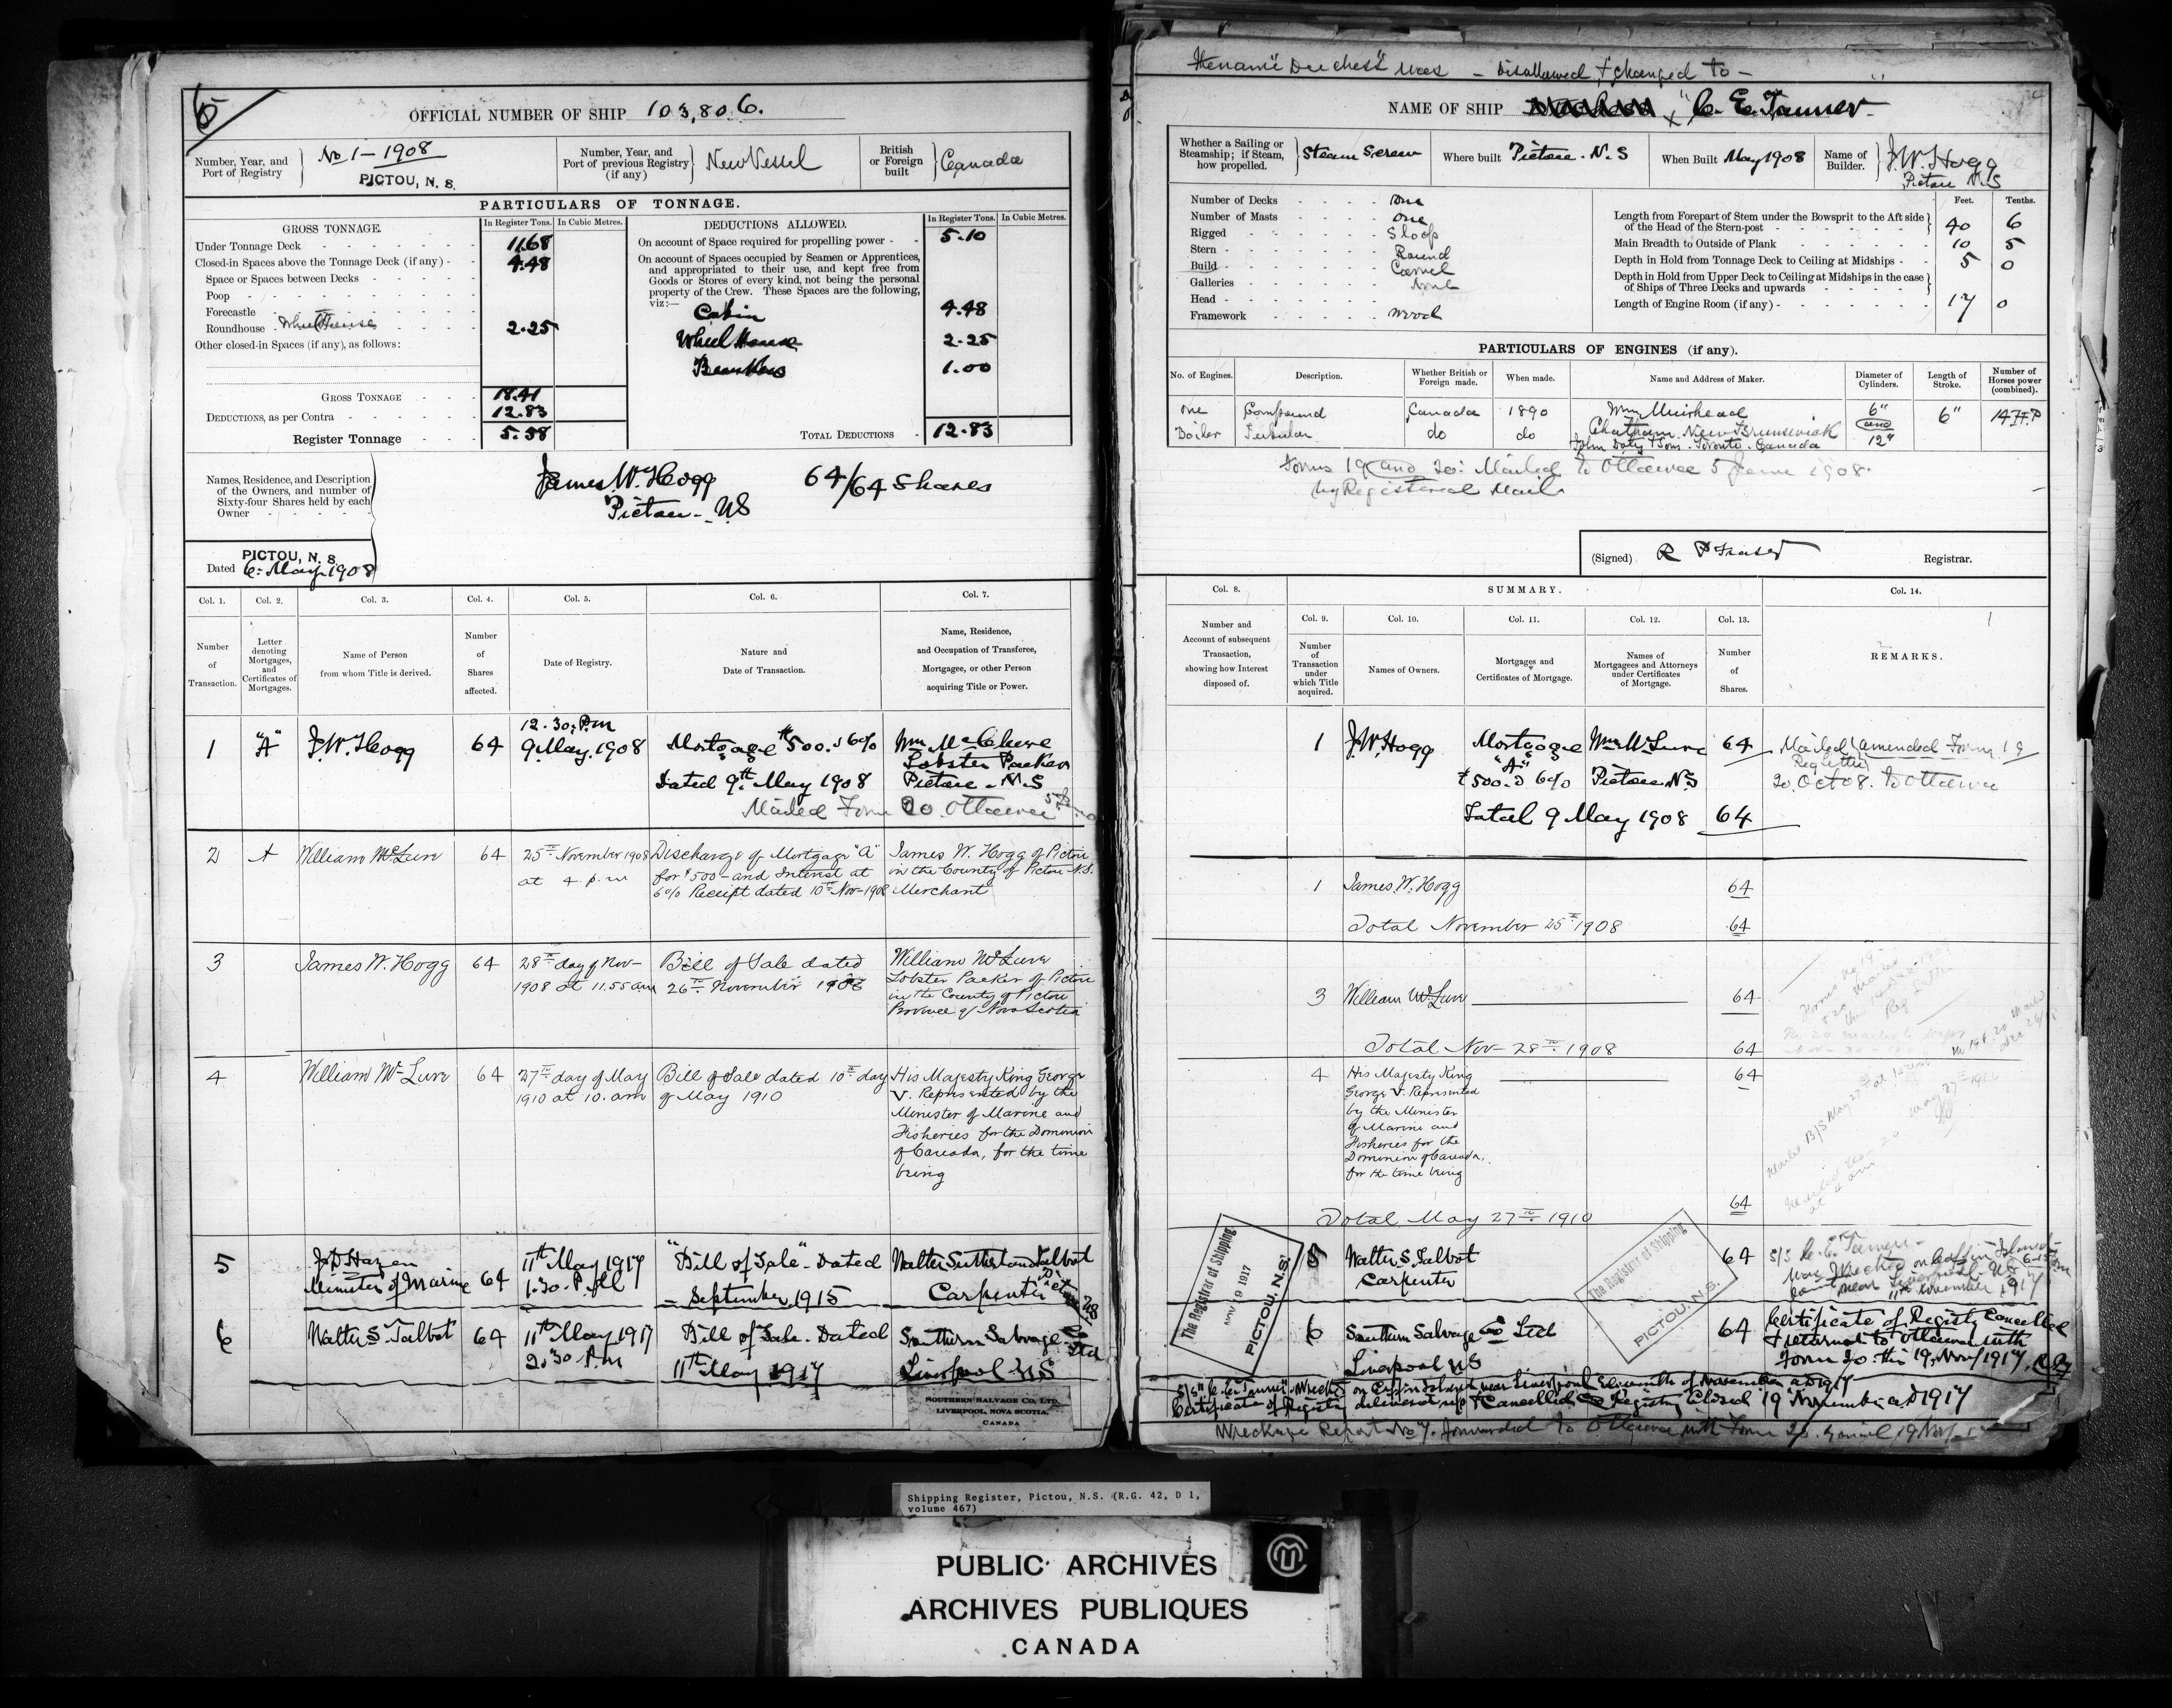 5
OFFICIAL NUMBER OF SHIP 103,806.
Number, Year, and Port of Registry
No 1 – 1908
PICTOU, N. S.
Number, Year, and Port of previous Registry (if any)
New Vessel
British or Foreign built
Canada
PARTICULARS OF TONNAGE.
GROSS TONNAGE.
In Register Tons. In Cubic Metres.
Under Tonnage Deck 11.68
Closed-in Spaces above the Tonnage Deck (if any) 4.48
Space or Spaces between Decks
Poop
Forecastle
Roundhouse Wheel House 2.25
Other closed-in Spaces (if any), as follows:
GROSS TONNAGE 18.41
DEDUCTIONS, as per Contra 12.83
Register Tonnage 5.58
DEDUCTIONS ALLOWED.
In Register Tons. In Cubic Metres.
On account of Space required for propelling power 5.10
On account of Spaces occupied by Seamen or Apprentices,
and appropriated to their use, and kept free from
Goods or Stores of every kind, not being the personal
property of the Crew. These Spaces are the following,
viz:—
Cabin 4.48
Wheel House 2.25
1.00
TOTAL DEDUCTIONS 12.83
Names, Residence, and Description
of the Owners, and number of
Sixty-four Shares held by each
Owner
James W. Hogg 64/64 Shares
Pictou - NS
PICTOU, N. S.
Dated 6. May 1908
Col. 1. Col. 2. Col. 3. Col. 4. Col. 5. Col. 6. Col. 7.
Number of Transaction.
Letter denoting Mortgages, and Certificates of Mortgages.
Name of Person from whom Title is derived.
Number of Shares affected.
Date of Registry.
Nature and Date of Transaction.
Name, Residence, and Occupation of Transferee, Mortgagee, or other Person acquiring Title or Power.
1 "A" J.W. Hogg 64
12.30. P.m
9. May. 1908
Mortgage $500. 6%
Dated 9th May 1908
Wm McClure
Lobster Packer
Pictou - N.S
Mailed Form 20. Ottawa 5 June
2 A William McLure 64
25th November 1908
at 4 p.m
Discharge of Mortgage "A"
for $500 – and Interest at
6% Receipt dated 10th Nov-1908
James W. Hogg of Pictou
in the County of Pictou N.S.
Merchant
3 James W. Hogg 64
28th day of Nov-
1908 at 11.55 am
Bill of Sale dated
26th November 1908
William McLure
Lobster Packer of Pictou
in the County of Pictou
Province of Nova Scotia
4 William McLure 64
27th day of May
1910 at 10. am
Bill of Sale dated 10th day
of May 1910
His Majesty King George
V. Represented by the
Minister of Marine and
Fisheries for the Dominion
of Canada, for the time
being
5
J D Hazen
Minister of Marine 64
11th May 1917
1.30. P.M
"Bill of Sale". Dated
September 1915
Walter Sutherland Talbot
Carpenter Pictou NS
6 Walter S Talbot 64
11th May 1917
2.30 P.m
Bill of Sale. Dated
11th May 1917
Southern Salvage Co Ltd
Liverpool NS
SOUTHERN SALVAGE CO. LTD.
LIVERPOOL, NOVA SCOTIA,
CANADA
The name "Duchess" was – Disallowed & changed to –
NAME OF SHIP x "C. E. Tanner
Whether a Sailing or Steamship; if Steam, how propelled.
Steam Screw
Where built Pictou. N.S
When Built May 1908
Name of Builder.
J.W. Hogg
Pictou N.S
Number of Decks one
Number of Masts one
Rigged Sloop
Stern Round
Build Carvel
Galleries
Head
Framework wood
Feet. Tenths.
Length from Forepart of Stem under the Bowsprit to the Aft side
of the Head of the Stern-post 40 6
Main Breadth to Outside of Plank 10 5
Depth in Hold from Tonnage Deck to Ceiling at Midships 5 0
Depth in Hold from Upper Deck to Ceiling at Midships in the case
of Ships of Three Decks and upwards
Length of Engine Room (if any) 17 0
PARTICULARS OF ENGINES (if any).
No. of Engines. Description. Whether British or Foreign made. When made. Name and Address of Maker. Diameter of Cylinders. Length of Stroke. Number of Horses power (combined).
one Compound Canada 1890 Wm Muirhead 6" and 12" 6" 14 H.P
Chatham. New Brunswick
Boiler Tubular do do John Doty & Son. Toronto. Canada
Forms 19 and 20. Mailed to Ottawa 5 June 1908.
by Registered Mail
(Signed) R P Fraser Registrar.
SUMMARY.
Col. 8. Col. 9. Col. 10. Col. 11. Col. 12. Col. 13. Col. 14.
Number and Account of subsequent Transaction, showing how Interest disposed of.
Number of Transaction under which Title acquired.
Names of Owners.
Mortgages and Certificates of Mortgage.
Names of Mortgagees and Attorneys under Certificates of Mortgage.
Number of Shares.
REMARKS.
1 J.W. Hogg Mortgage "A" $500. 6% Wm McLure Pictou N.S 64
Total 9 May 1908 64
Mailed amended Form 19
20. Oct 08. to Ottawa
1 James W. Hogg 64
Total November 25th 1908 64
3 William McLure 64
Total Nov- 28th 1908 64
4 His Majesty King
George V. Represented
by the Minister
of Marine and
Fisheries for the
Dominion of Canada,
for the time being
64
64
Total May 27th 1910
The Registrar of Shipping
NOV 19 1917
PICTOU, N.S.
5 Walter S Talbot
Carpenter
64
The Registrar of Shipping
PICTOU, N.S.
S/S C. E. Tanner -
was Wrecked on Coffin Island
near Liverpool. NS
11th November 1917
6 Southern Salvage Co Ltd
Liverpool NS
64
Certificate of Registry Cancelled
& returned to Ottawa with
Form 20. this 19. Nov/1917.
S/S "C. E. Tanner" Wrecked on Coffin Island near Liverpool Eleventh of November AD 1917
Certificate of Registry delivered up & Cancelled Registry Closed 19 November AD 1917
Wreckage Report No 7. forwarded to Ottawa with Form 20. 19 Nov
Shipping Register, Pictou, N.S. (R.G. 42, D 1,
volume 467)
PUBLIC ARCHIVES
ARCHIVES PUBLIQUES
CANADA